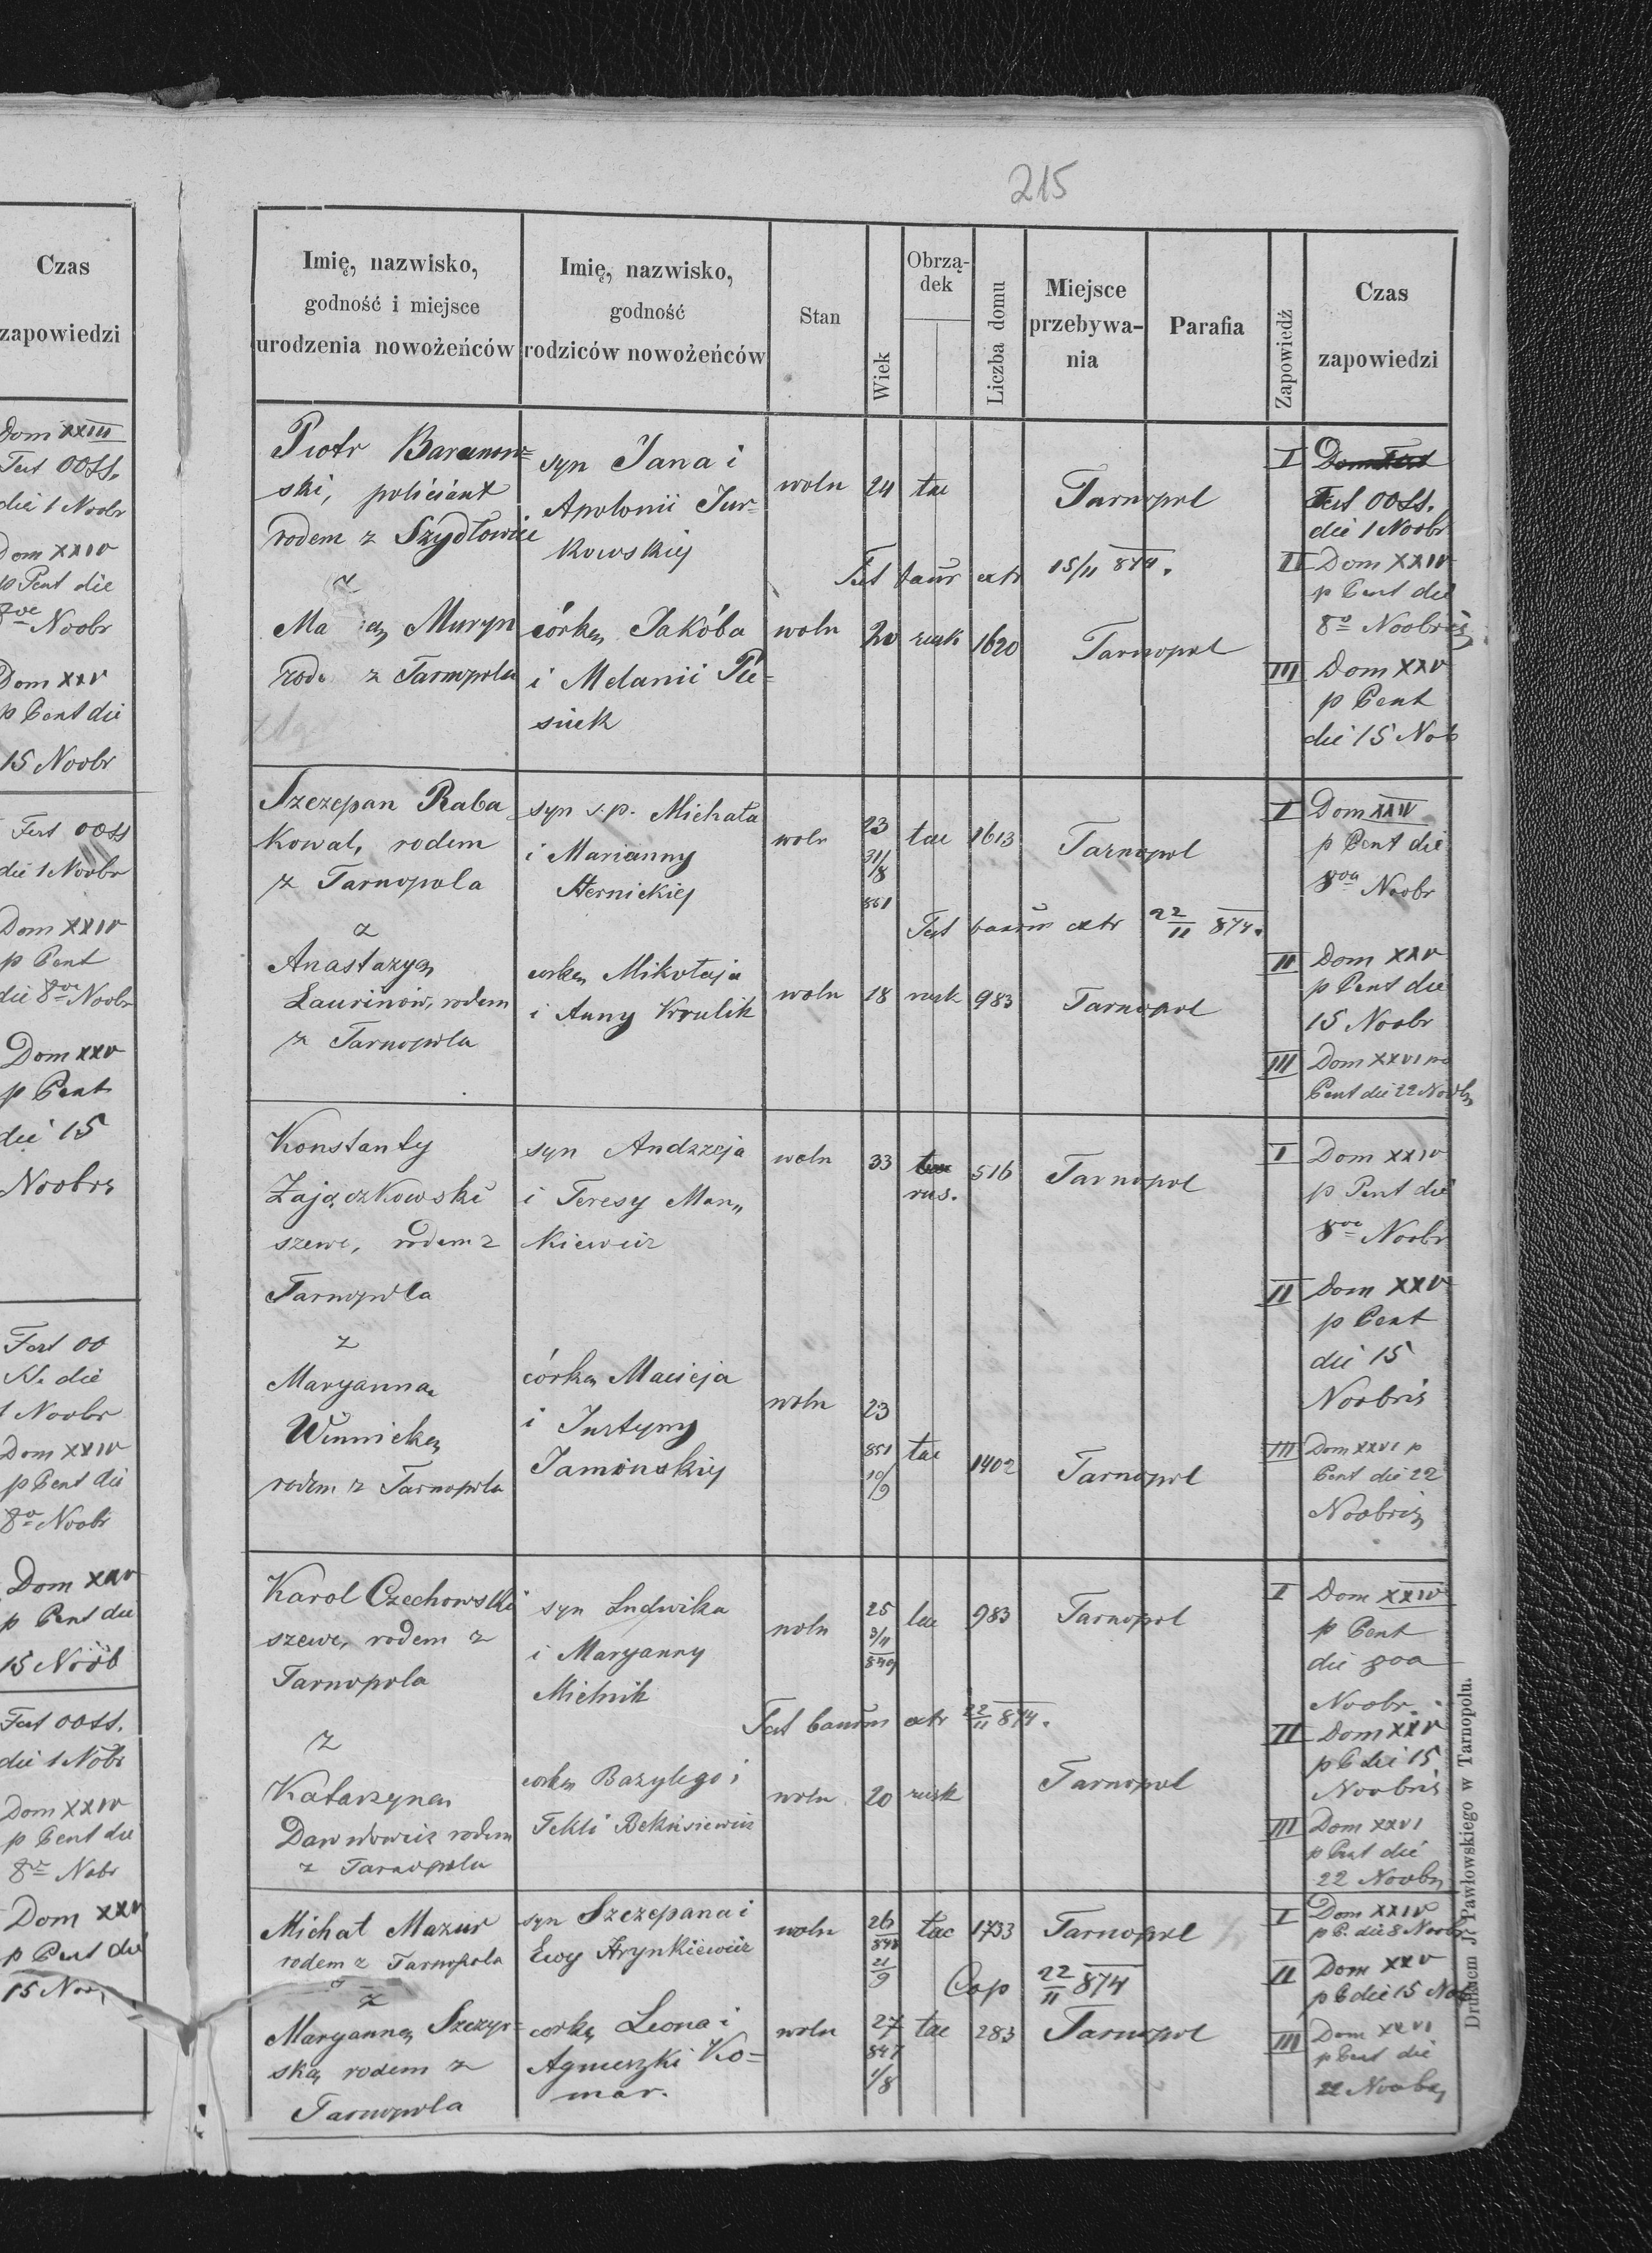 Czas
zapowiedzi
Dom XXIII
Fest OOSS.
die 1 Noobr
Dom XXIV
p Pent die
8ve Noobr
Dom XXV
p Pent die
15 Noobr
Fest OOSS
die 1 Noobr
Dom XXIV
p Pent
die 8ve Noobr
Dom XXV
p Pent
die 15
Noobris
Fest OO
SS. die
1 Noobr
Dom XXIV
p Pent die
8o Noobr
Dom XXV
p Pent die
15 Noob
Fest OOSS.
die 1 Nobr
Dom XXIV
p Pent die
8 Nobr
Dom XXV
p Pent die
15 Noo
215
Imię, nazwisko,
godność i miejsce
urodzenia nowożeńców
Imię, nazwisko,
godność
rodziców nowożeńców
Stan
Wiek
Obrzą-
dek
Liczba domu
Miejsce
przebywa-
nia
Parafia
Zapowiedź
Czas
zapowiedzi
Piotr Baranow=
ski, policiant
rodem z Szydłowiec
z
Ma Muryn
rod z Tarnopola
syn Jana i
Apolonii Jur=
kowskiej
córka Jakóba
i Melanii Pie=
siuk
woln 24 łac Tarnopol
Test bann extr 15/11 874.
woln 20 rusk 1620 Tarnopol
I
Fest OOSS.
die 1 Noobr
II Dom XXIV
p Pent die
8o Noobris
III Dom XXV
p Pent
die 15 Nob
Szczepan Raba
Kowal, rodem
z Tarnopola
z
Anastazya
Laurinów, rodem
z Tarnopola
syn s.p. Michała
i Marianny
Hernickiej
corka Mikołaja
i Anny Krulik
woln 23 łac 1613 Tarnopol
31/8
851
Test bannm extr 22/11 874.
woln 18 rusk 983 Tarnopol
I Dom XXIV
p Pent die
8va Noobr
II Dom XXV
p Pent die
15 Noobr
III Dom XXVI po
Pent die 22 Noobr
Konstanty
Zajączkowski
szewc, rodem z
Tarnopola
z
Maryanna
Winnicka
rodem z Tarnopola
syn Andrzeja
i Teresy Man„
kiewicz
córka Macieja
i Justyny
Jamińskiej
woln 33 łac 516 Tarnopol
rus.
woln 23
851 łac 1402 Tarnopol
10/9
I Dom XXIV
p Pent die
8ve Noobr
II Dom XXV
p Pent
die 15
Noobris
III Dom XXVI p
Pent die 22
Noobris
Karol Czechowski
szewc, rodem z
Tarnopola
z
Katarzyna
rodem
z Tarnopola
syn Ludwika
i Maryanny
Mielnik
corka Bazylego i
Tekli
woln 25 łac 983 Tarnopol
3/11
849
Test bannm extr 22/11 874.
woln 20 rusk Tarnopol
I Dom XXIV
p Pent
die 8va
Noobr.
II Dom XXV
p P die 15
Noobris
III Dom XXVI
p Pent die
22 Noobr
Michał Mazur
rodem z Tarnopola
z
Maryanna Szczyr=
ska rodem z
Tarnopola
syn Szczepana i
Ewy Hrynkiewicz
corka Leona i
Agnieszki Ko=
mar.
woln 26 łac 1733 Tarnopol
848
21/9
Cop 22/11 874
woln 27 łac 283 Tarnopol
847
1/8
I Dom XXIV
p P. die 8 Noobr
II Dom XXV
p P die 15 Nob
III Dom XXVI
p Pent die
22 Noobr
Drukiem J. Pawłowskiego w Tarnopolu.